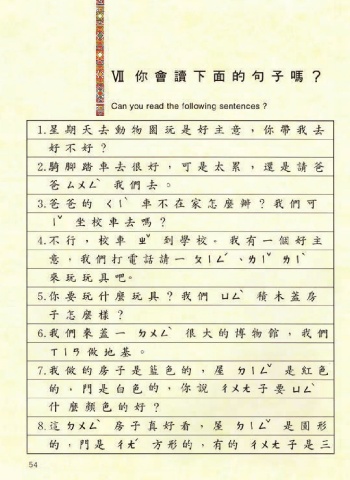 Ⅶ 你會讀下面的句子嗎？
Can you read the following sentences ?
1.星期天去動物園玩是好主意，你帶我去
好不好？
2.騎腳踏車去很好，可是太累，還是請爸
爸ㄙㄨㄥˋ我們去。
3.爸爸的ㄑㄧˋ車不在家怎麼辦？我們可
ㄧˇ坐校車去嗎？
4.不行，校車ㄓˇ到學校。我有一個好主
意，我們打電話請一ㄆㄧㄥˊ、ㄌㄧˇㄌㄧˋ
來玩玩具吧。
5.你要玩什麼玩具？我們ㄩㄥˋ積木蓋房
子怎麼樣？
6.我們來蓋一ㄉㄨㄥˋ很大的博物館，我們
ㄒㄧㄢ做地基。
7.我做的房子是藍色的，屋ㄉㄧㄥˇ是紅色
的，門是白色的，你說ㄔㄨㄤ子要ㄩㄥˋ
什麼顏色的好？
8.這ㄉㄨㄥˋ房子真好看，屋ㄉㄧㄥˇ是圓形
的，門是ㄔㄤˊ方形的，有的ㄔㄨㄤ子是三
54